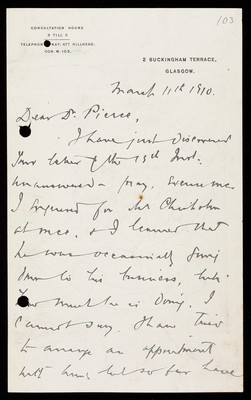 103
CONSULTATION HOURS
2 TILL 3
TELEPHONE NAT. 477 HILLHEAD.
2 BUCKINGHAM TERRACE,
GLASGOW.
March 11th 1910.
Dear Dr. Pierce,
I have just discovered
Your letter of the 15th Inst.
unanswered - pray, excuse me.
I enquired for Mr Chisholm
at once, & I learned that
he was occasionally going
down to his business, but
how much he is doing, I
cannot say. I have tried
to arrange an appointment
with him, but so far have